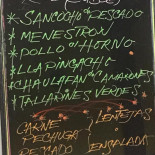 * SANCOCHO DE PESCADO
* MENESTRON
* POLLO al HORNO
* LLAPINGACHO
* CHAULAFAN de CAMARONES
* TALLARINES VERDES
CARNE
PECHUGA LENTEJAS
PESCADO ENSALADA